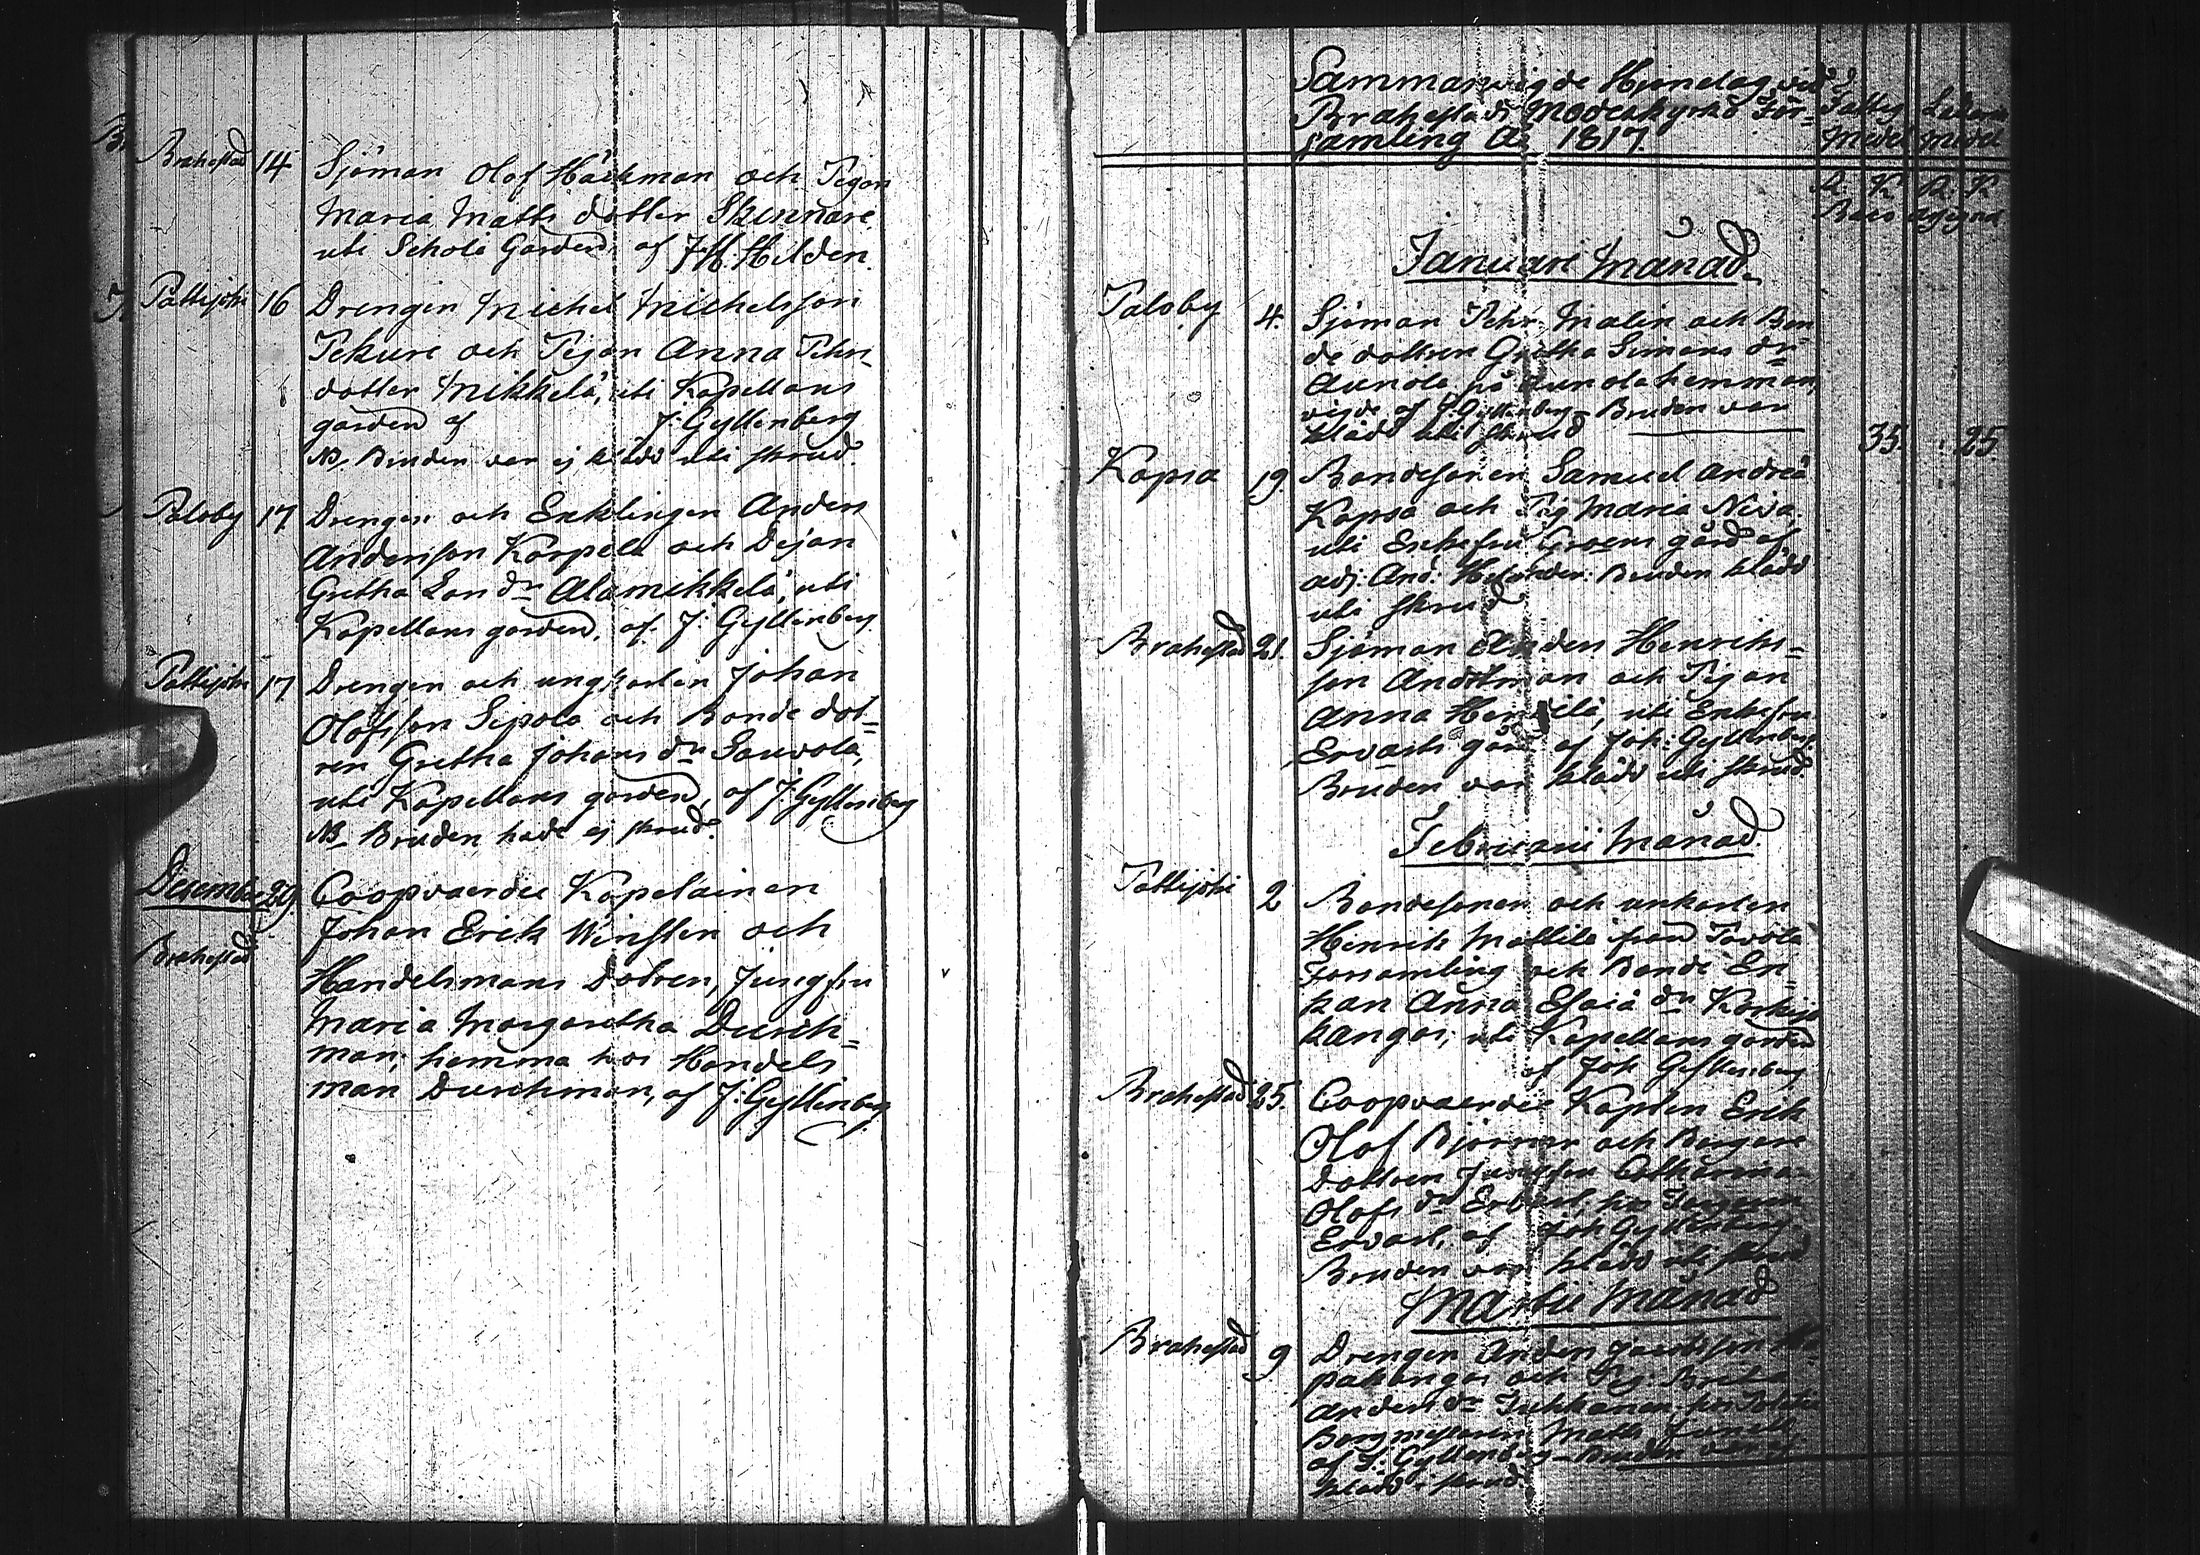 Brahestad 14 Sjöman Olof Häckman och Pigan
Maria Matts dotter Skinnare,
uti Schola Garden af J. H. Hilden.
Pattijoki 16 Drengen Michel Michelsson
Pekuri och Pigan Anna Pehrs
dotter Mikkelä, uti Kapellans
garden af J: Gyllenberg
NB. Bruden var ej klädd uti skrud.
Paloby 17 Drengen och Enklingen Anders
Andersson Karpela och Dejan
Gretha Lars dr Alamikkelä, uti
Kapellans garden, af J: Gyllenberg
Pattijoki 17 Drengen och ungkarlen Johan
Olofsson Sipola och Bonde dot=
ren Gretha Johans dr Sauvola,
uti Kapellans garden, af J: Gyllenberg
NB. Bruden hade ej skrud.
December 29 Coopvaerdie Kapetainen
Brahestad Johan Erik Winsten och
Handelsmans Dotren, Jungfru
Maria Margaretha Durch=
man, hemma hos Handels
man Durchman, af J: Gyllenberg
Sammanvigde Hjonelag vid
Brahestads Moderkyrko För=
samling År 1817.
Fattig Ledern
Medel Medel
R K R K
Banco Assignat
Januari Månad
Paloby 4. Sjöman Pehr Malin och Bon
de dottren Gretha Simons dr
Aunola på Aunola hemman,
vigde af J: Gyllenberg – Bruden var
klädd uti skrud 35. 25
Kopsa 19. Bondesonen Samuel Andreä
Kopsa och Pig Maria Niva
uti Enkefru Groens gård af
adj: And: Helander. Bruden klädd
uti skrud
Brahestad 21. Sjöman Anders Henriks=
son Andelman och Pigan
Anna uti Enkefru
Ervasts gård af Joh: Gyllenberg.
Bruden var klädd uti skrud.
Februarii Månad
Pattijoki 2 Bondesonen och unkarlen
Henrik Mattila från Pavola
Forsamling och Bonde En=
kan Anna Esaiä dr
kangas, uti Kapellans garden
af Joh Gyllenberg
Brahestad 25. Coopvaerdie Kapten Erik
Olof Björnar och Borgare
Dottren Jungfru Catharina
Olofs dr Ervast, hos
Ervast, af Joh Gyllenberg.
Bruden var klädd uti skrud
Martii Månad
Brahestad 9 Drengen Anders Jacobsson
pakangas och Pig: Brita
Anders dr Jukkanen, hos
Borgmästaren Matts Junell
af J: Gyllenberg – Bruden var ej
klädd i skrud.